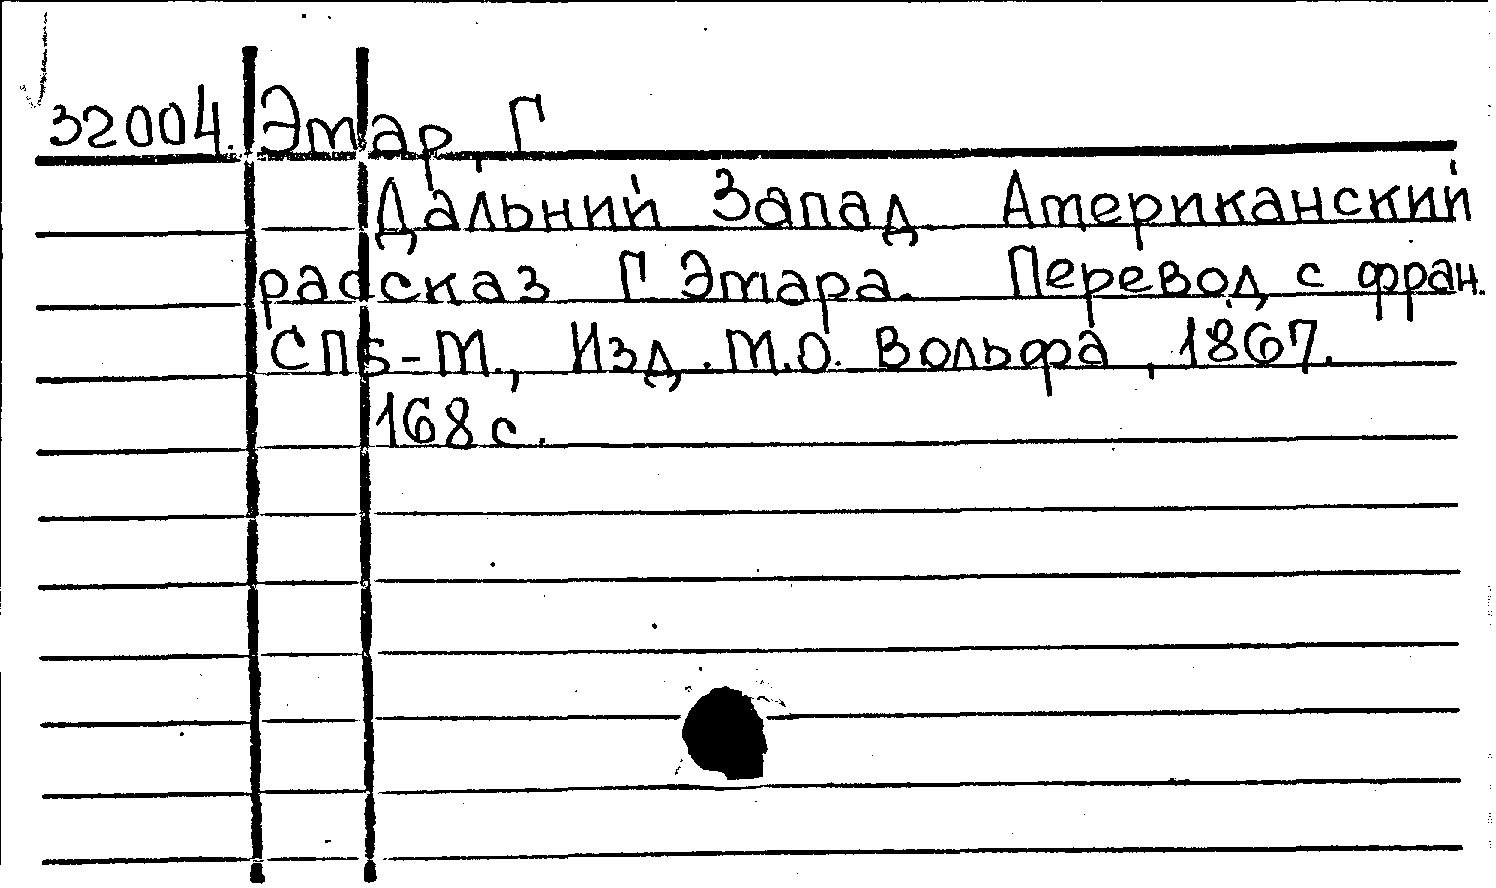 32004.Эмар, Г
Дальний Запад Американский
рассказ Г. Эмара. Перевод с фран.
СПб-М., Изд. М.О. Вольфа, 1867.
168 с.